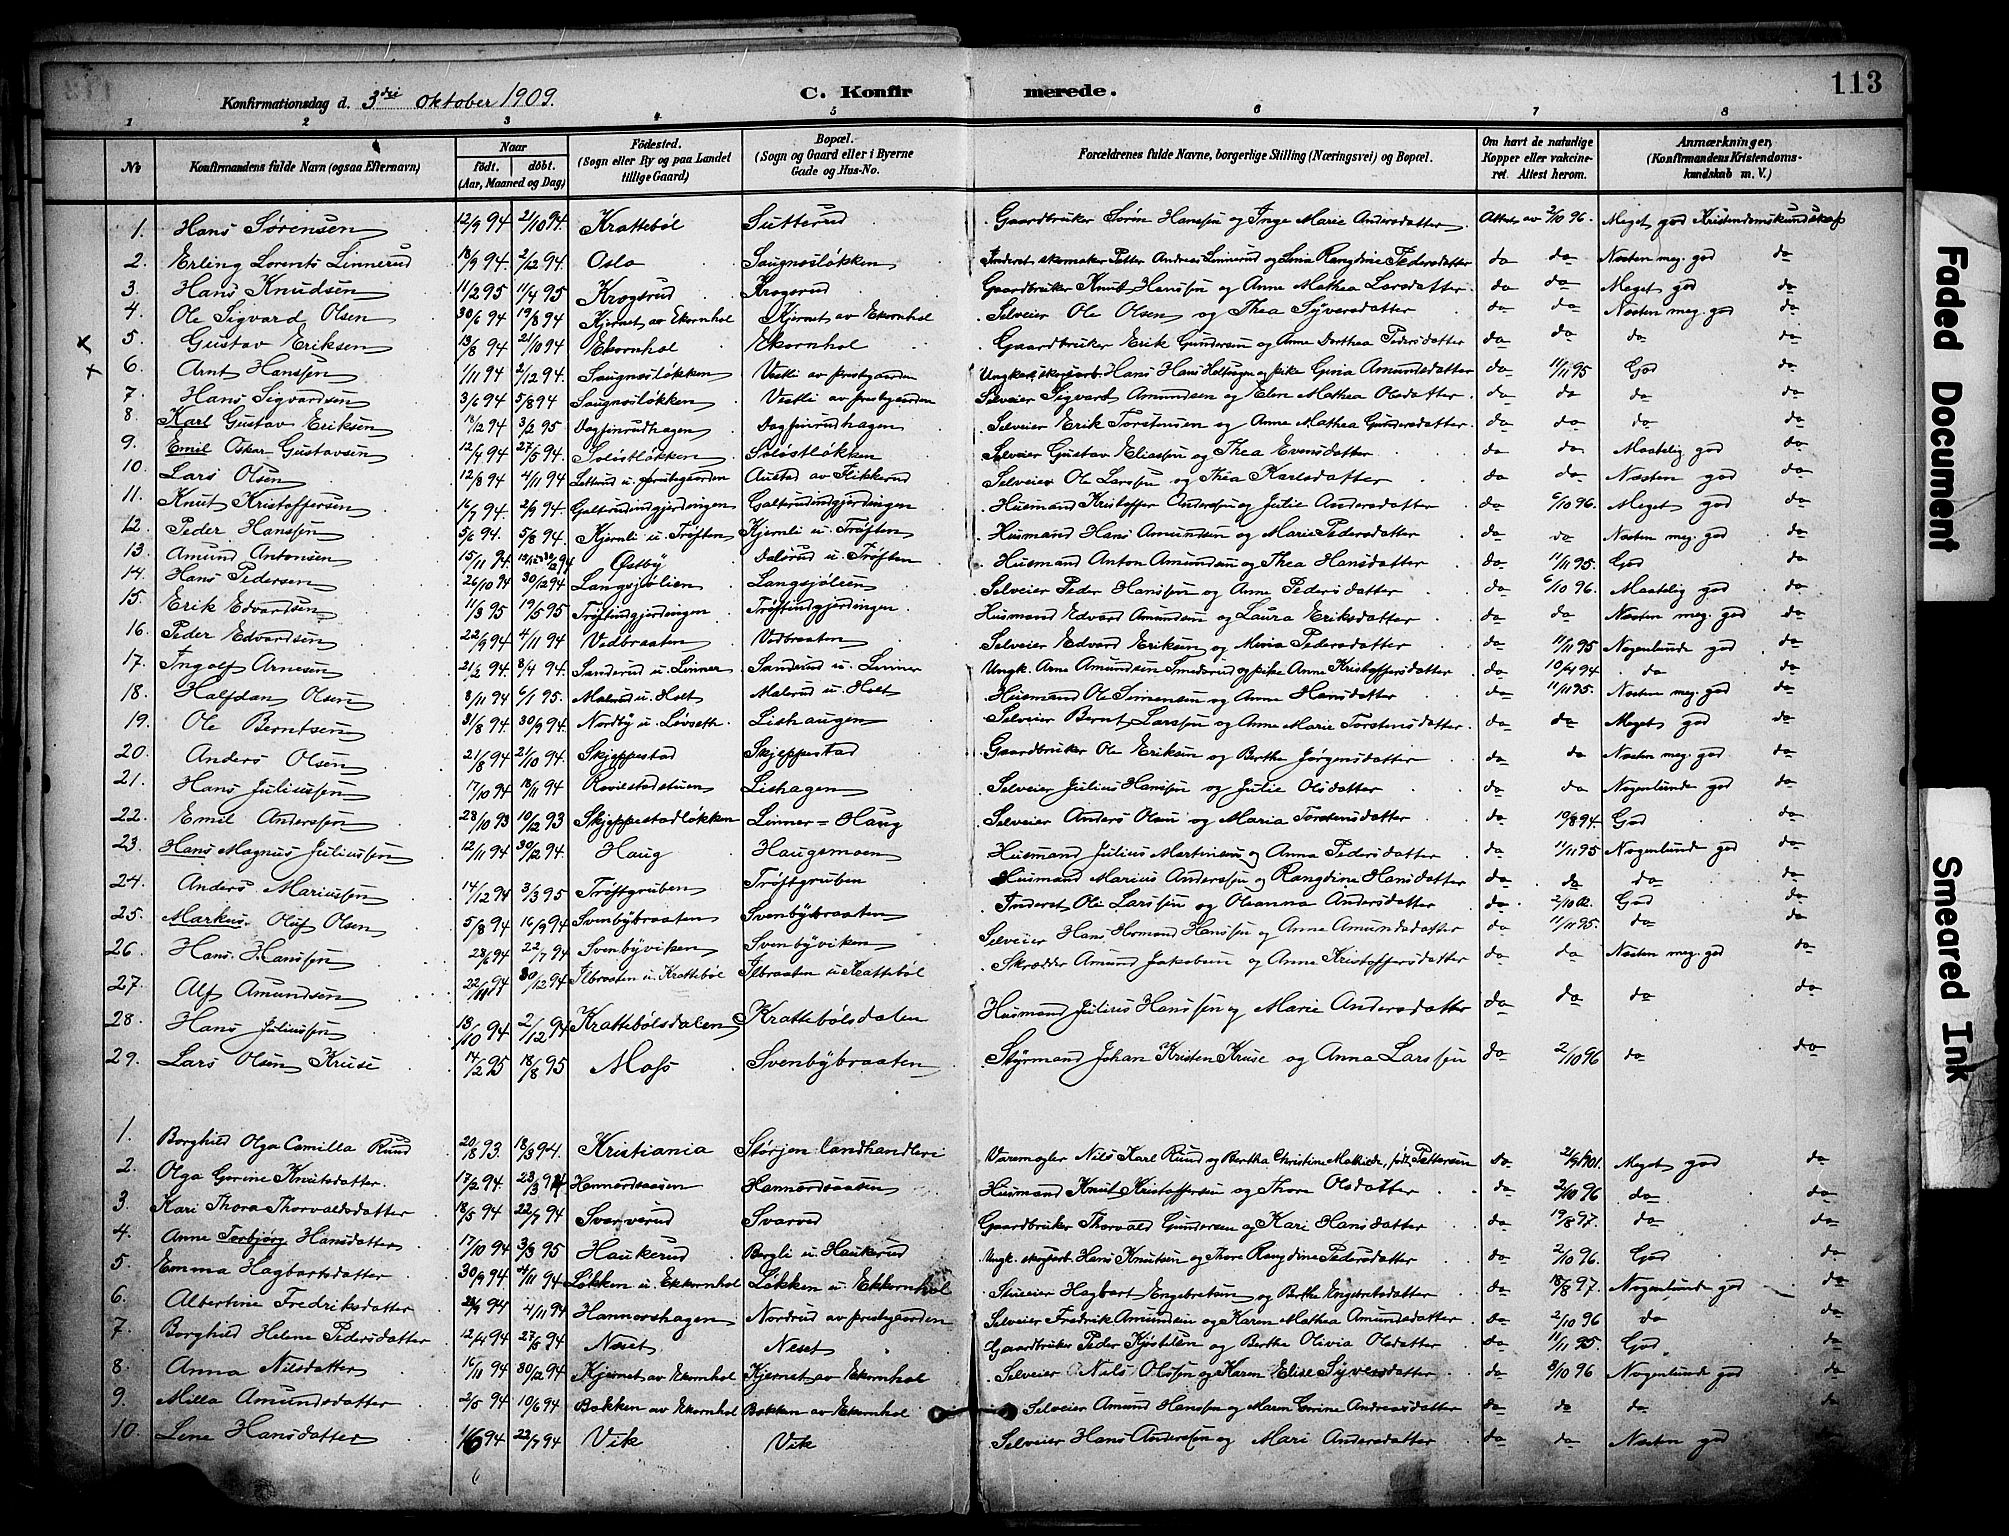 113
Konfirmationsdag d. 3die Oktober 1909.
C. Konfirmerede.
1 2 3 4 5 6 7 8
No. Konfirmandens fulde Navn (ogsaa Efternavn) Naar født. døbt. (Aar, Maaned og Dag) Fødested. (Sogn eller By og paa Landet tillige Gaard) Bopæl. (Sogn og Gaard eller i Byerne Gade og Hus-No. Forældrenes fulde Navne, borgerlige Stilling (Næringsvei) og Bopæl. Om havt de naturlige Kopper eller vakcineret. Attest herom. Anmærkninger, (Konfirmandens Kristendomskundskab m. V.)
1. Hans Sørensen 12/9 94 2/10 94. Krattebøl Sutterud Gaardbruker Søren Hanssen og Inge Marie Andersdatter Attest av 2/10 96. Meget god Kristendomskundskap
2. Erling Lorents Linnerud 18/9 94. 2/12 94. Oslo Saugnesløkken Inderst skomaker Petter Andreas Linnerud og Lina Rangdine Pedersdatter do do Næsten meg. god do
3. Hans Knudsen 11/2 95 11/4 95 Krogsrud Krogsrud Gaardbruker Knut Hanssen og Anne Mathea Larsdatter do do Meget god do
4. Ole Sigvard Olsen 30/6 94 19/8 94 Kjernet av Ekornhol Kjernet av Ekornhol Selveier Ole Olsen og Thea Syversdatter do do Næsten meg. god do
x 5. Gustav Eriksen 13/8 94 21/10 94 Ekornhol Ekornhol Gaardbruker Erik Gundersen og Anne Dorthea Pedersdatter do do do do
x 6. Arnt Hanssen 1/11 94 2/12 94. Saugnesløkken Vestli av prestgaarden Ungkar skogsarb. Hans Hans Helset og pike Gina Amundsdatter do 11/11 95 God do
7. Hans Sigvardsen 3/6 94 5/8 94 Saugnesløkken Vestli av prestgaarden Selveier Sigvard Amundsen og Elen Mathea Olsdatter do do do do
8. Karl Gustav Eriksen 14/12 94 3/2 95 Dagfinrudhagen Dagfinrudhagen Selveier Erik Torstensen og Anne Mathea Gundersdatter do do do do
9. Emil Oskar Gustavsen 12/4 94 27/5 94. Soløstløkken Soløstløkken Selveier Gustav Eliassen og Thea Evensdatter do do Maatelig god do
10. Lars Olsen 12/8 94 4/11 94 prestegaarden Austad av Flikkerud Selveier Ole Larssen og Thea Karlsdatter do do Næsten god do
11. Knut Kristoffersen 16/7 94. 2/9 94 Galterudindgjerdingen Galterudindgjerdingen Husmand Kristoffer Anderssen og Julie Andersdatter do 6/10 96. Meget god do
12. Peder Hanssen 5/6 94. 5/8 94 Kjernli u. Trøften Kjernli u. Trøften Husmand Hans Amundsen og Marie Pedersdatter do do Næsten meg. god do
13. Amund Antonsen 15/11 94. Østby Dalsrud u. Trøften Husmand Anton Amundsen og Thea Hansdatter do 11/11 95. God do
14. Hans Pedersen 26/10 94 30/12 94 Langsjølien Langsjølien Selveier Peder Hanssen og Anne Pedersdatter do 6/10 96. Maatelig god do
15. Erik Edvardsen 11/3 95 19/5 95 Trøftindgjerdingen Trøftindgjerdingen Husmand Edvard Amundsen og Laura Eriksdatter do do Næsten meg. god do
16. Peder Edvardsen 22/9 94 4/11 94 Vedbraaten Vedbraaten Selveier Edvard Eriksen og Mina Pedersdatter do 11/11 95 Nogenlunde god do
17. Ingolf Arnesen 21/2 94. 8/4 94. Sanderud u. Linner Sanderud u. Linner Ungk. Arne Amundsen Smedsrud og pike Anne Kristoffersdatter do 10/4 94 do do
18. Halfdan Olsen 8/11 94 6/1 95. Malerud u. Holt Malerud u. Holt Husmand Ole Simensen og Anne Hansdatter do 11/11 95. Næsten meg. god do
19. Ole Berntsen 31/8 94. 30/9 94. Nordby u. Livseth. Lishaugen Selveier Bernt Larssen og Anne Marie Torstensdatter do do Meget god do
20. Anders Olsen 21/8 94 2/10 94. Skjeppestad Skjeppestad Gaardbruker Ole Eriksen og Berthe Jørgensdatter do do Næsten meg. god do
21. Hans Juliussen 17/10 94 18/11 94 Rovilstadstuen Lishagen Selveier Julius Hanssen og Julie Olsdatter do do Nogenlunde god do
22. Emil Anderssen 28/10 93 10/12 93 Skjeppestadløkken Linner = Haug Selveier Anders Olsen og Maria Torstensdatter do 19/8 94. God do
23. Hans Magnus Juliussen 12/11 94 30/12 94. Haug Haugsmoen Husmand Julius Martinsen og Anna Pedersdatter do 11/11 95 Nogenlunde god do
24. Anders Mariussen 14/12 94 3/3 95 Trøftgruben Trøftgruben Husmand Marius Anderssen og Rangdine Hansdatter do do do do
25. Markus Oluf Olsen 5/8 94 16/9 94 Svenbybraaten Svenbybraaten Inderst Ole Larssen og Oleanna Andersdatter do 2/10 02. God do
26. Hans Hanssen 28/6 94 22/7 94 Svenbyviken Svenbyviken Selveier Hans Herman Hanssen og Anne Amundsdatter do 11/11 95. do do
27. Alf Amundsen 22/11 94 30/12 94 Ilbraaten u. Krattebøl Ilbraaten u. Krattebøl Skrædder Amund Jakobsen og Anne Kristoffersdatter do do Næsten meg. god do
28. Hans Juliussen 13/10 94 2/12 94 Krattebølsdalen Krattebølsdalen Husmand Julius Hanssen og Marie Andersdatter do do do do
29. Lars Olsen Kruse 14/2 95 18/8 95 Moss Svenbybraaten Styrmand Johan Kristen Kruse og Anna Larssen do 2/10 96 do do
1. Borghild Olga Camilla Ruud 20/8 93. 18/3 94. Kristiania Størjen Landhandleri Varemægler Nils Karl Ruud og Bertha Christine Mathilde, født Pettersen do 2/9 1901. Meget god do
2. Olga Gurine Knutsdatter. 17/2 94. 23/3 94 Hannordsaasen Hannordsaasen Husmand Knut Kristoffersen og Thora Olsdatter do 2/10 96 do do
3. Kari Thora Thorvaldsdatter 18/5 94 22/7 94 Svarverud Svarvud Gaardbruker Thorvald Gundersen og Kari Hansdatter do 19/8 97. do do
4. Anne Torbjørg Hansdatter 17/10 94 3/3 95 Haukerud Bergli u. Haukerud Ungk. skogsarb. Hans Knutsen og Thora Rangdine Pedersdatter do 2/10 96. God do
5. Emma Hagbartsdatter 30/9 94 4/11 94 Løkken u. Ekkornhol Løkken u. Ekkornhol Hagbart Engebretsen og Berthe Engebretsdatter do 18/8 97. Nogenlunde god do
6. Albertine Fredriksdatter 94 4/11 94 Hannorshagen Nordrud av prestgaarden Selveier Fredrik Amundsen og Karen Mathea Amundsdatter do 2/10 96 do do
7. Borghild Helene Pedersdatter 12/4 94 27/5 94 Neset Neset Gaardbruker Peder Kjostelsen og Berthe Olivia Olsdatter do 11/11 95. God do
8. Anna Nilsdatter 16/11 94 30/12 94 Kjernet av Ekornhol Kjernet av Ekornhol Selveier Nils Olssen og Karen Elise Syversdatter do 3/10 96 Nogenlunde god do
9. Milla Amundsdatter 2/5 94 10/6 94 Bakken av Ekornhol Bakken av Ekornhol Selveier Amund Hanssen og Maren Gurine Andreasdatter do do do do
10. Lene Hansdatter 1/6 94 22/7 94 Vik Vik Selveier Hans Anderssen og Mari Andersdatter do do Næsten god do
Faded Document
Smeared Ink